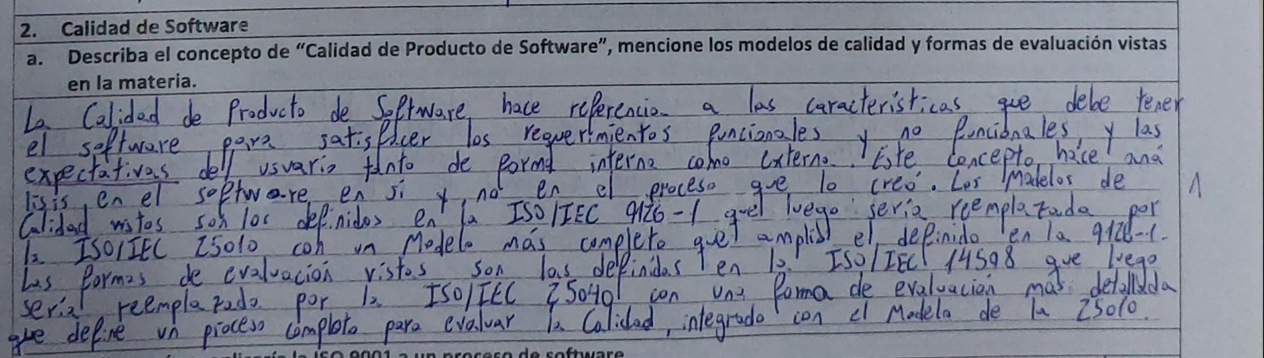 2. Calidad de Software
a. Describa el concepto de “Calidad de Producto de Software”, mencione los modelos de calidad y formas de evaluación vistas
en la materia.
La Calidad de Producto de Software hace referencia a las características que debe tener
el software para satisfacer los requerimientos funcionales y no funcionales, y las
expectativas del usuario tanto de forma interna como externa. Este concepto hace aná
lisis en el software en si y no en el proceso que lo creó. Los Modelos de
Calidad vistos son los definidos en la ISO/IEC 9126-1 que luego sería reemplazada por
la ISO/IEC 25010 con un Modelo más completo que amplió el definido en la 9126-1.
Las formas de evaluación vistas son las definidas en la ISO/IEC 14598 que luego
sería reemplazada por la ISO/IEC 25040 con una forma de evaluación más detallada
que define un proceso completo para evaluar la Calidad, integrado con el Modelo de la 25010.
1
la ISO 9001 a un proceso de software